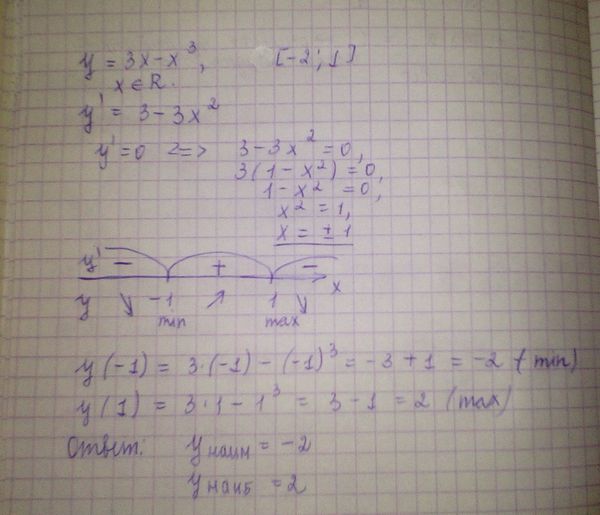 y = 3x - x³, [-2; 1]
x ∈ R.
y' = 3 - 3x²
y' = 0 <=> 3 - 3x² = 0,
3(1 - x²) = 0,
1 - x² = 0,
x² = 1,
x = ± 1
y' - + - x
y ↘ -1 ↗ 1 ↘
min max
y(-1) = 3·(-1) - (-1)³ = -3 + 1 = -2 (min)
y(1) = 3·1 - 1³ = 3 - 1 = 2 (max)
Ответ: y наим = -2
y наиб = 2